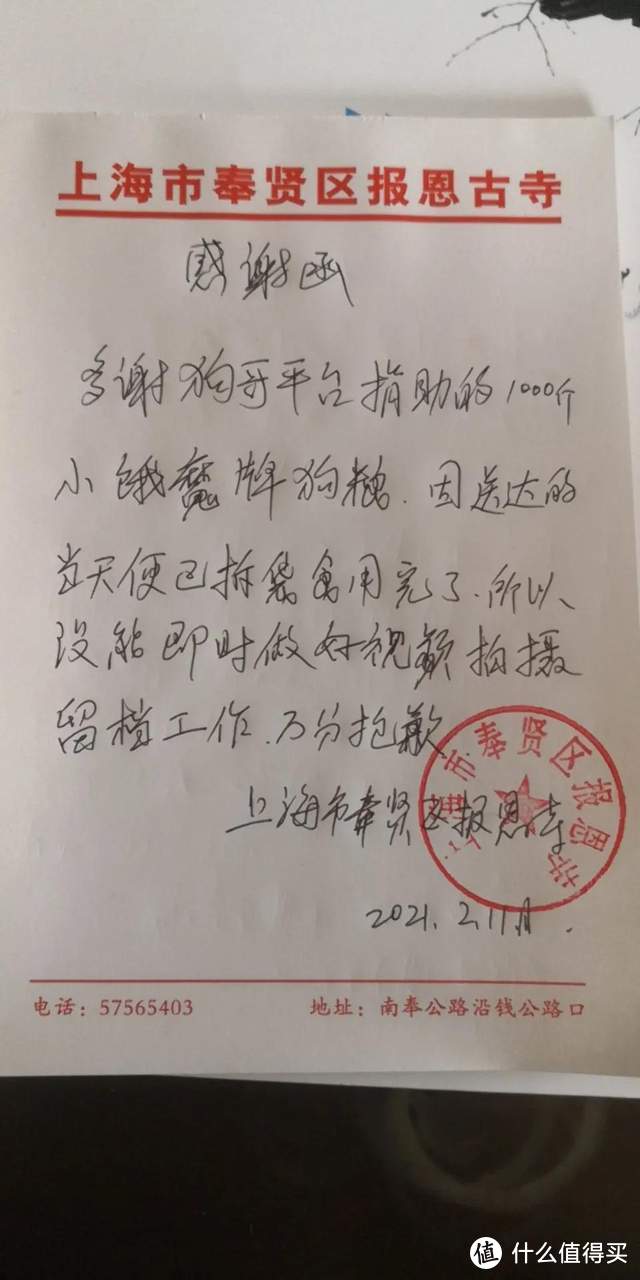 上海市奉贤区报恩古寺
感谢函
多谢狗哥平台捐助的1000斤
小饿魔牌狗粮.因送达的
当天便已拆袋食用完了.所以
没能即时做好视频拍摄
留档工作.万分抱歉.
上海市奉贤区报恩寺
上海市奉贤区报恩寺
2021.2.11月.
电话：57565403
地址：南奉公路沿钱公路口
值 什么值得买